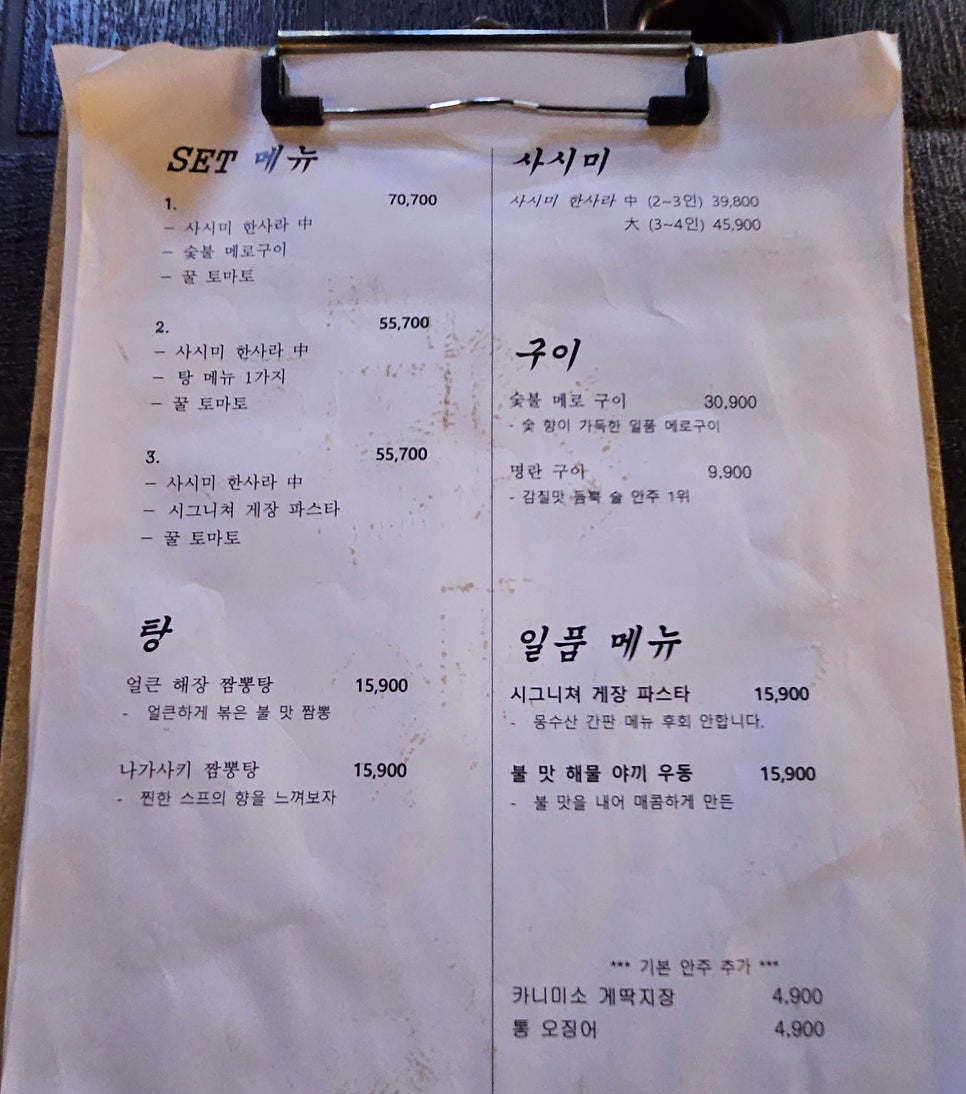 SET 메뉴
1. 70,700
- 사시미 한사라 中
- 숯불 메로구이
- 꿀 토마토
2. 55,700
- 사시미 한사라 中
- 탕 메뉴 1가지
- 꿀 토마토
3. 55,700
- 사시미 한사라 中
- 시그니쳐 게장 파스타
- 꿀 토마토
탕
얼큰 해장 짬뽕탕 15,900
- 얼큰하게 볶은 불 맛 짬뽕
나가사키 짬뽕탕 15,900
- 찐한 스프의 향을 느껴보자
사시미
사시미 한사라 中 (2~3인) 39,800
大 (3~4인) 45,900
구이
숯불 메로 구이 30,900
- 숯 향이 가득한 일품 메로구이
명란 구이 9,900
- 감칠맛 듬뿍 술 안주 1위
일품 메뉴
시그니쳐 게장 파스타 15,900
- 몽수산 간판 메뉴 후회 안합니다.
불 맛 해물 야끼 우동 15,900
- 불 맛을 내어 매콤하게 만든
*** 기본 안주 추가 ***
카니미소 게딱지장 4,900
통 오징어 4,900